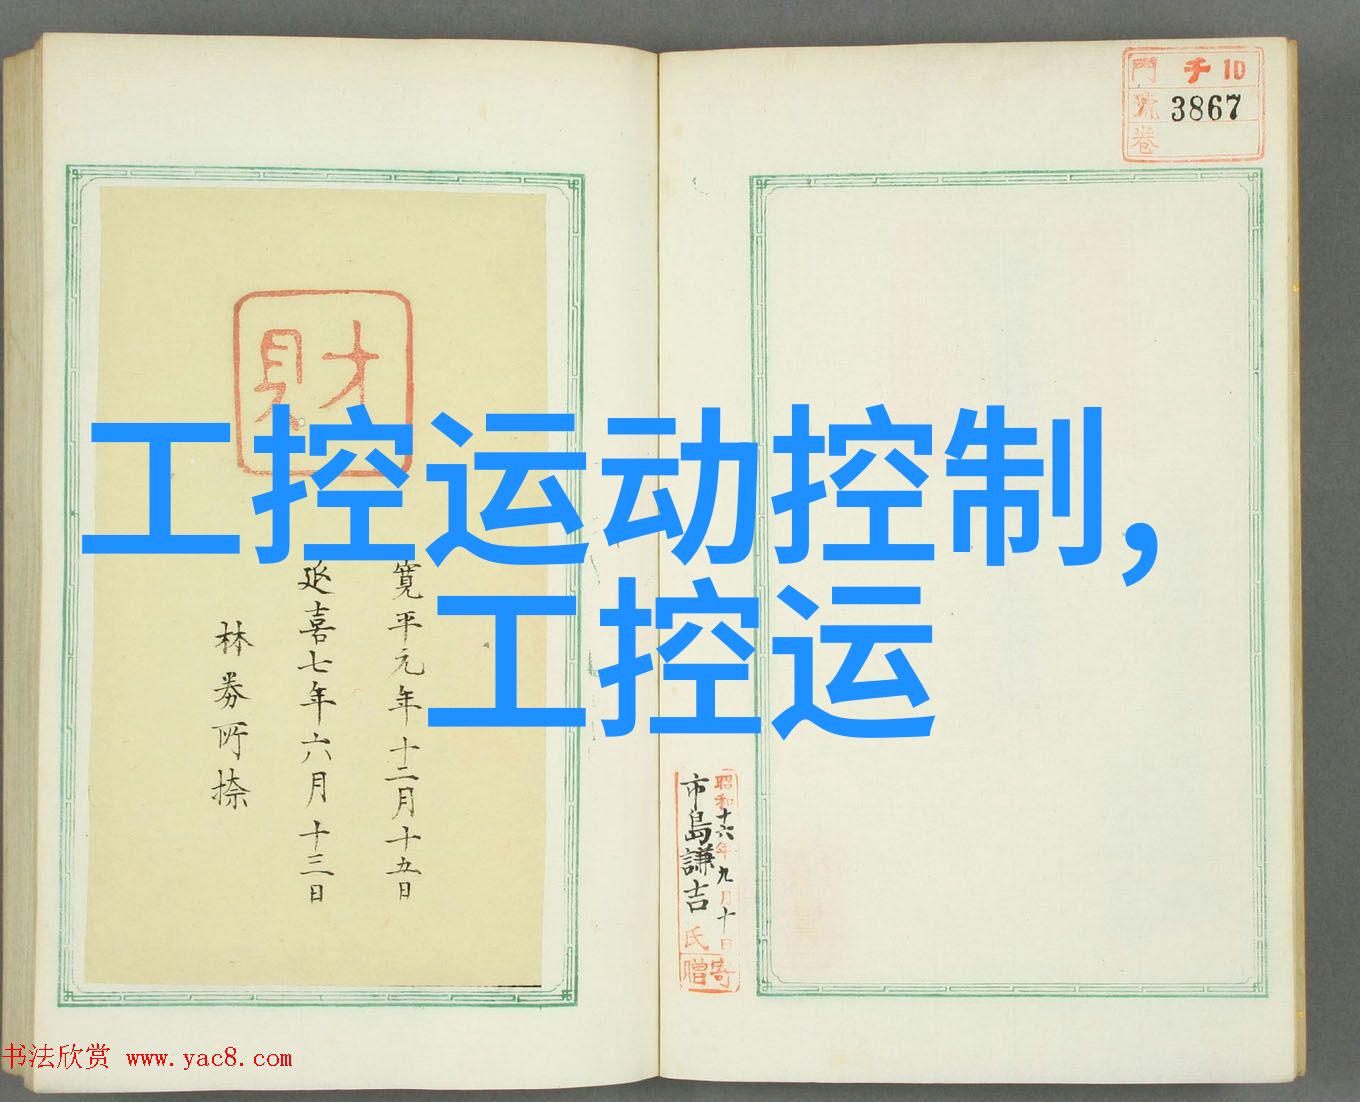 門 千 10
號 3867
卷
財
工控运动控制,
工控运
寛平元年十二月十五日
延喜七年六月十三日
林券所捺
昭和十六年九月十日
市島謙吉氏
寄贈
书法欣赏 www.yac8.com